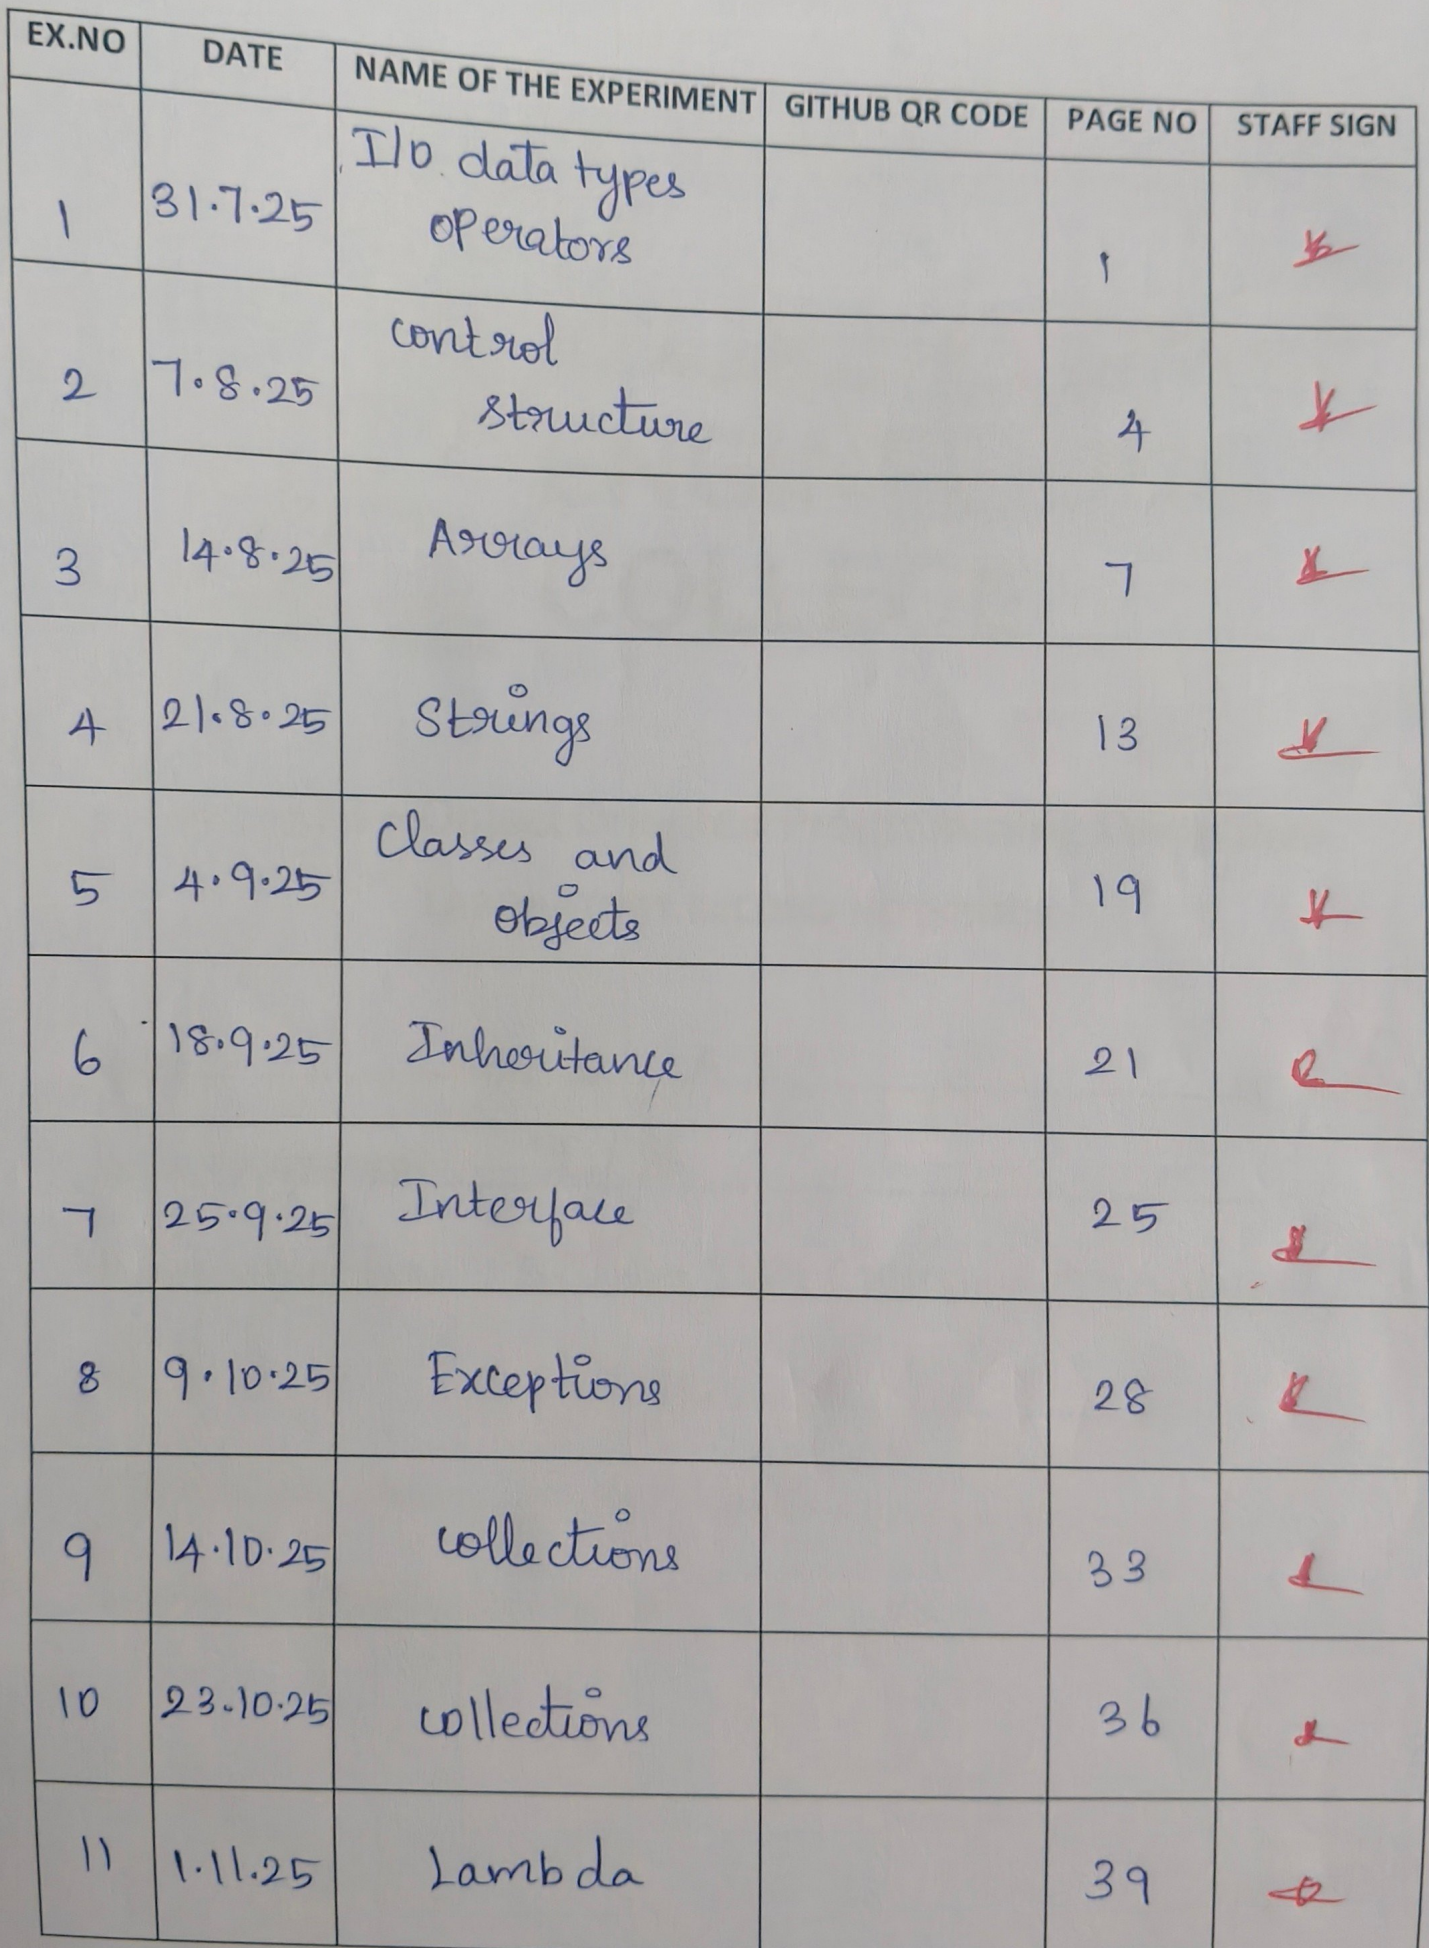 EX.NO DATE NAME OF THE EXPERIMENT GITHUB QR CODE PAGE NO STAFF SIGN
1 31.7.25 I/O. data types operators 1
2 7.8.25 control structure 4
3 14.8.25 Arrays 7
4 21.8.25 Strings 13
5 4.9.25 Classes and objects 19
6 18.9.25 Inheritance 21
7 25.9.25 Interface 25
8 9.10.25 Exceptions 28
9 14.10.25 collections 33
10 23.10.25 collections 36
11 1.11.25 Lambda 39